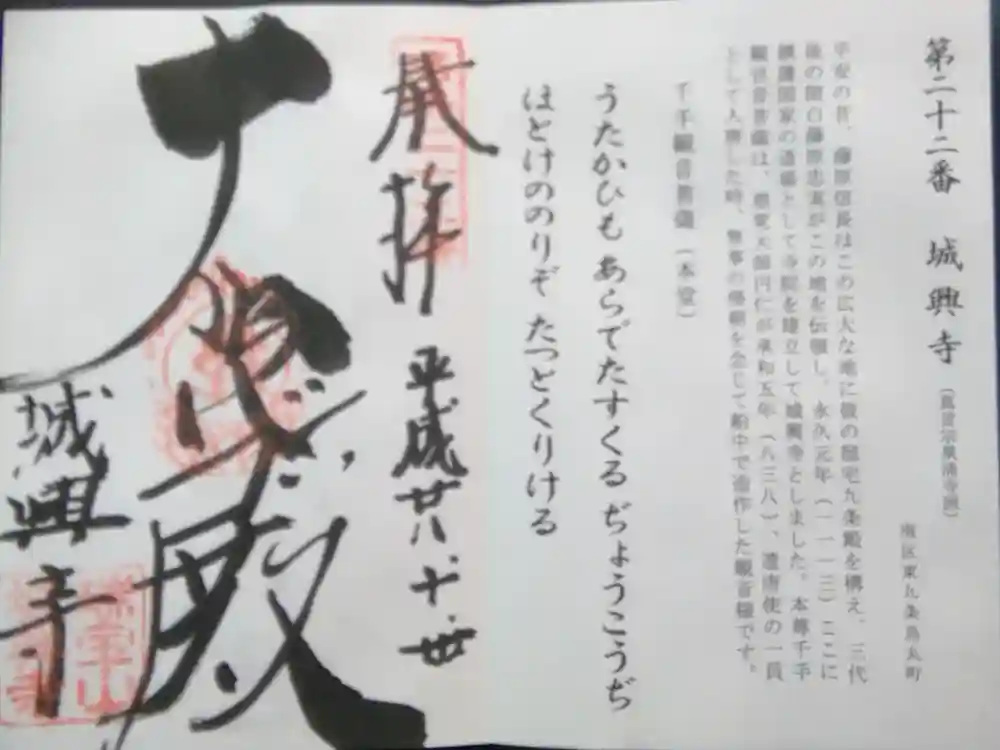 第二十二番 城興寺 (真言宗泉涌寺派)
南区東九条烏丸町
平安の昔、藤原信長はこの広大な地に彼の邸宅九条殿を構え、三代
後の関白藤原忠実がこの地を伝領し、永久元年(一一一三)ここに
鎮護国家の道場として寺院を建立して城興寺としました。本尊千手
観世音菩薩は、慈覚大師円仁が承和五年(八三八)、遣唐使の一員
として入唐した時、無事の帰朝を念じて船中で造作した観音様です。
千手観音菩薩(本堂)
うたかひも あらでたすくる ぢょうこうぢ
ほとけののりぞ たつとくりける
奉拝 平成廿八、十、卅
大悲殿
城興寺